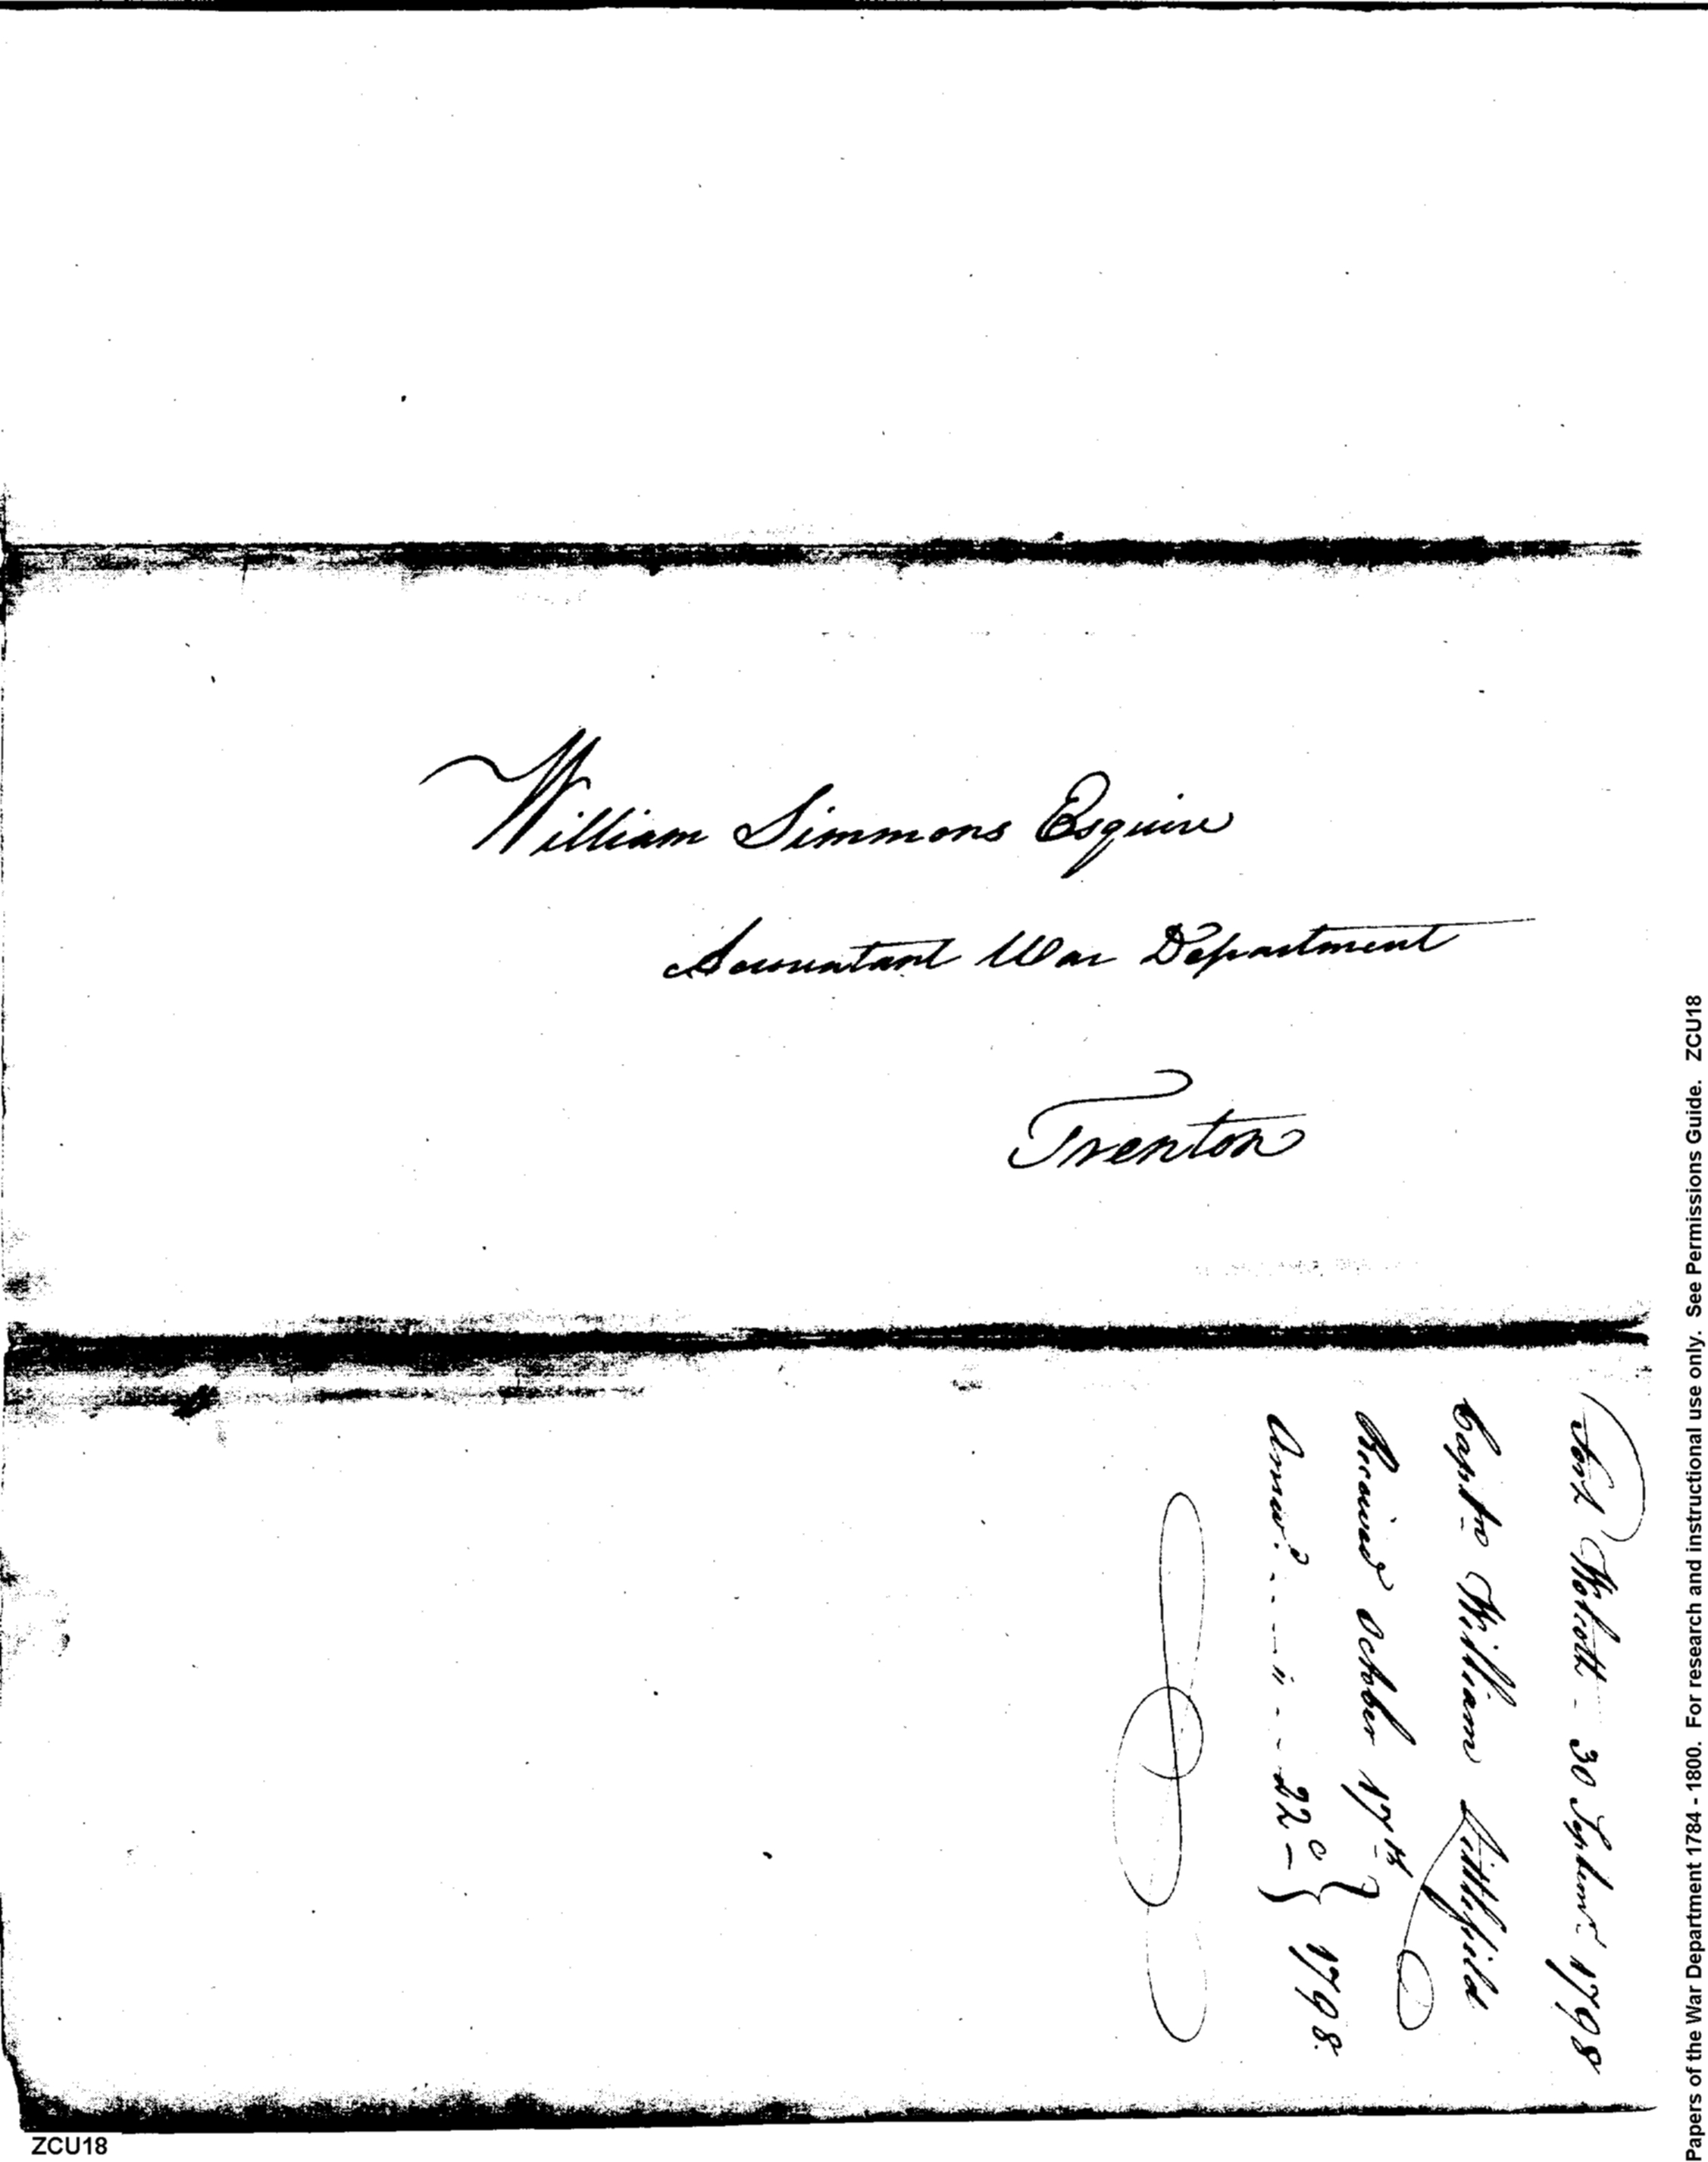 William Simmons Esquire
Accountant War Department
Trenton
Fort Wolcott - 30 Septemr. 1798
Captn William Littlefield
Received October 17th }
Answd. - - - " - - 22d - } 1798.
ZCU18
Papers of the War Department 1784 - 1800. For research and instructional use only. See Permissions Guide. ZCU18